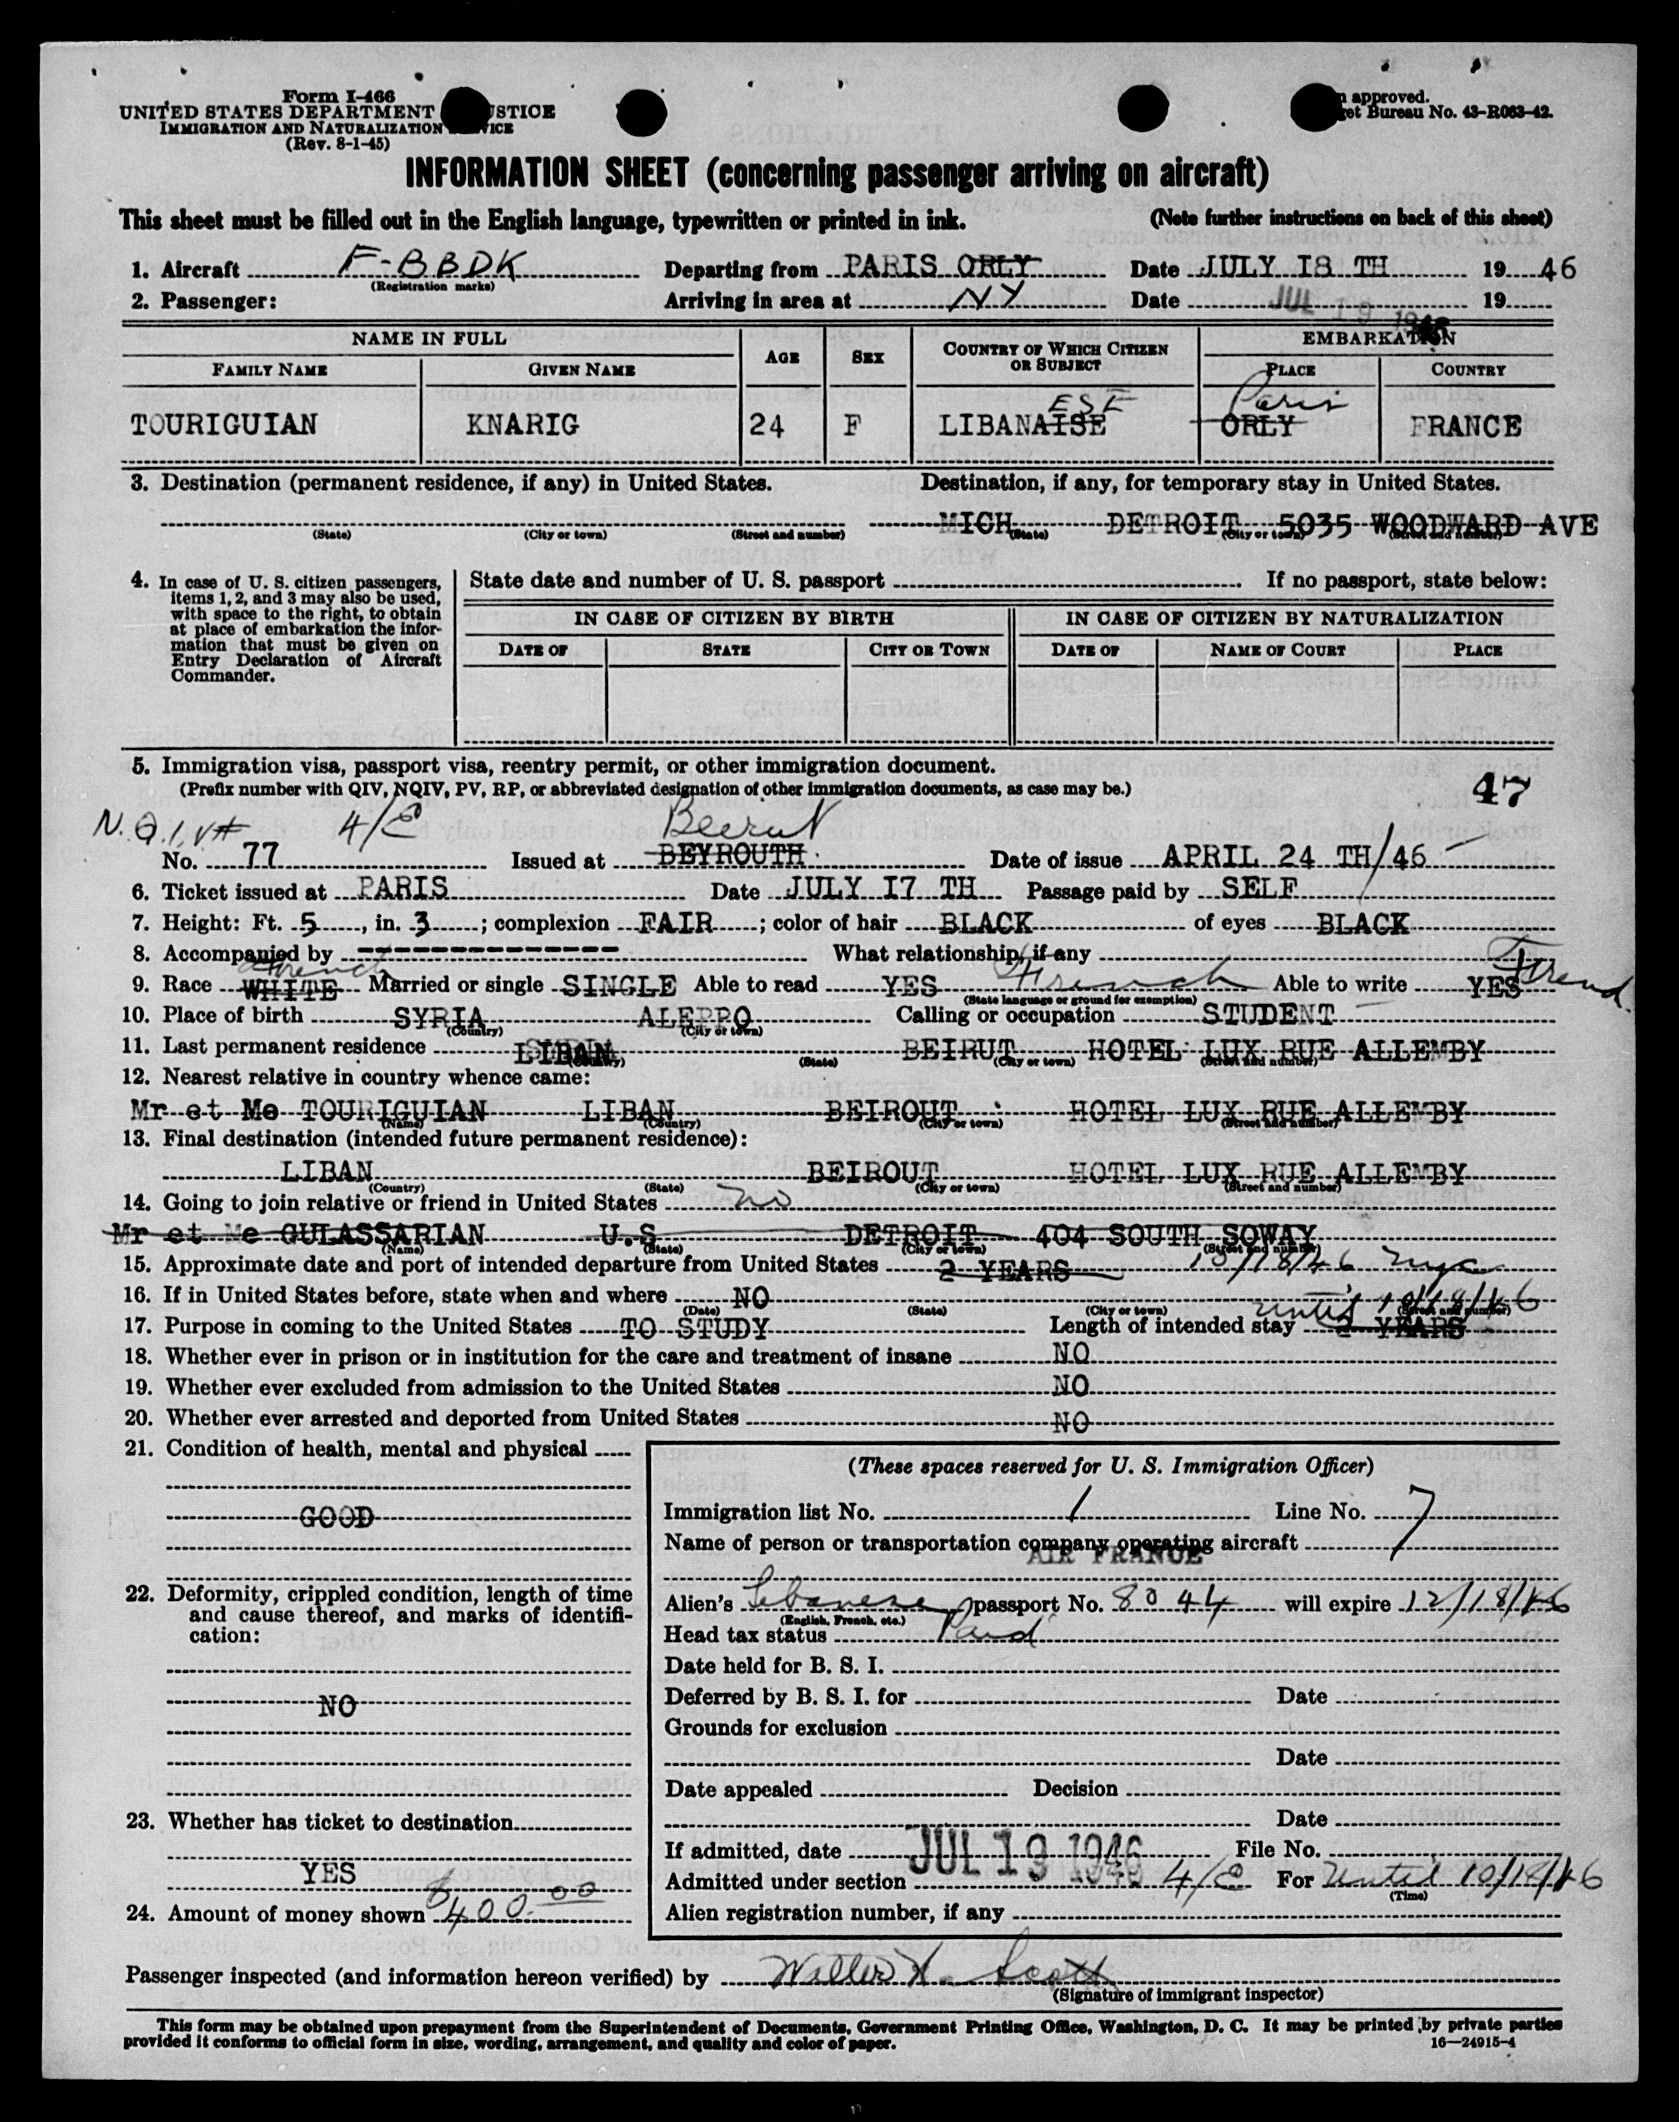 Form I-466
UNITED STATES DEPARTMENT USTICE
IMMIGRATION AND NATURALIZATION VICE
(Rev. 8-1-45)
approved.
get Bureau No. 43-R063-42.
INFORMATION SHEET (concerning passenger arriving on aircraft)
This sheet must be filled out in the English language, typewritten or printed in ink. (Note further instructions on back of this sheet)
1. Aircraft F-BBDK Departing from PARIS ORLY Date JULY I8 TH 19 46
(Registration marks)
2. Passenger: Arriving in area at NY Date JUL 19 1946 19
NAME IN FULL AGE SEX COUNTRY OF WHICH CITIZEN OR SUBJECT EMBARKATION
FAMILY NAME GIVEN NAME PLACE COUNTRY
ESE Paris
TOURIGUIAN KNARIG 24 F LIBANAISE ORLY FRANCE
3. Destination (permanent residence, if any) in United States. Destination, if any, for temporary stay in United States.
MICH DETROIT 5035 WOODWARD AVE
(State) (City or town) (Street and number) (State) (City or town) (Street and number)
4. In case of U. S. citizen passengers, items 1, 2, and 3 may also be used, with space to the right, to obtain at place of embarkation the information that must be given on Entry Declaration of Aircraft Commander.
State date and number of U. S. passport If no passport, state below:
IN CASE OF CITIZEN BY BIRTH IN CASE OF CITIZEN BY NATURALIZATION
DATE OF STATE CITY OR TOWN DATE OF NAME OF COURT PLACE
5. Immigration visa, passport visa, reentry permit, or other immigration document.
(Prefix number with QIV, NQIV, PV, RP, or abbreviated designation of other immigration documents, as case may be.) 47
N.Q.I.V# 4/E Beirut
No. 77 Issued at BEYROUTH Date of issue APRIL 24 TH/46
6. Ticket issued at PARIS Date JULY I7 TH Passage paid by SELF
7. Height: Ft. 5, in. 3; complexion FAIR; color of hair BLACK of eyes BLACK
8. Accompanied by -------------- What relationship, if any
French French French
9. Race WHITE Married or single SINGLE Able to read YES Able to write YES
(State language or ground for exemption)
10. Place of birth SYRIA ALEPPO Calling or occupation STUDENT
(Country) (City or town)
11. Last permanent residence LIBAN BEIRUT HOTEL LUX RUE ALLEMBY
(Country) (State) (City or town) (Street and number)
12. Nearest relative in country whence came:
Mr et Me TOURIGUIAN LIBAN BEIROUT HOTEL LUX RUE ALLEMBY
(Name) (Country) (City or town) (Street and number)
13. Final destination (intended future permanent residence):
LIBAN BEIROUT HOTEL LUX RUE ALLEMBY
(Country) (State) (City or town) (Street and number)
14. Going to join relative or friend in United States no
Mr et Me GULASSARIAN U.S DETROIT 404 SOUTH SOWAY
(Name) (State) (City or town) (Street and number)
15. Approximate date and port of intended departure from United States 2 YEARS 10/18/46 nyc
16. If in United States before, state when and where NO
(Date) (State) (City or town) (Street and number)
until 10/18/46
17. Purpose in coming to the United States TO STUDY Length of intended stay 2 YEARS
18. Whether ever in prison or in institution for the care and treatment of insane NO
19. Whether ever excluded from admission to the United States NO
20. Whether ever arrested and deported from United States NO
21. Condition of health, mental and physical
GOOD
22. Deformity, crippled condition, length of time and cause thereof, and marks of identification:
NO
23. Whether has ticket to destination
YES
24. Amount of money shown $400.00
(These spaces reserved for U. S. Immigration Officer)
Immigration list No. 1 Line No. 7
Name of person or transportation company operating aircraft
AIR FRANCE
Alien's Lebanese passport No. 8044 will expire 12/18/46
(English, French, etc.)
Head tax status Paid
Date held for B. S. I.
Deferred by B. S. I. for Date
Grounds for exclusion
Date
Date appealed Decision
Date
If admitted, date JUL 19 1946 File No.
Admitted under section 4/E For Until 10/18/46
(Time)
Alien registration number, if any
Passenger inspected (and information hereon verified) by Walter H. Scott
(Signature of immigrant inspector)
This form may be obtained upon prepayment from the Superintendent of Documents, Government Printing Office, Washington, D. C. It may be printed by private parties
provided it conforms to official form in size, wording, arrangement, and quality and color of paper. 16—24915-4